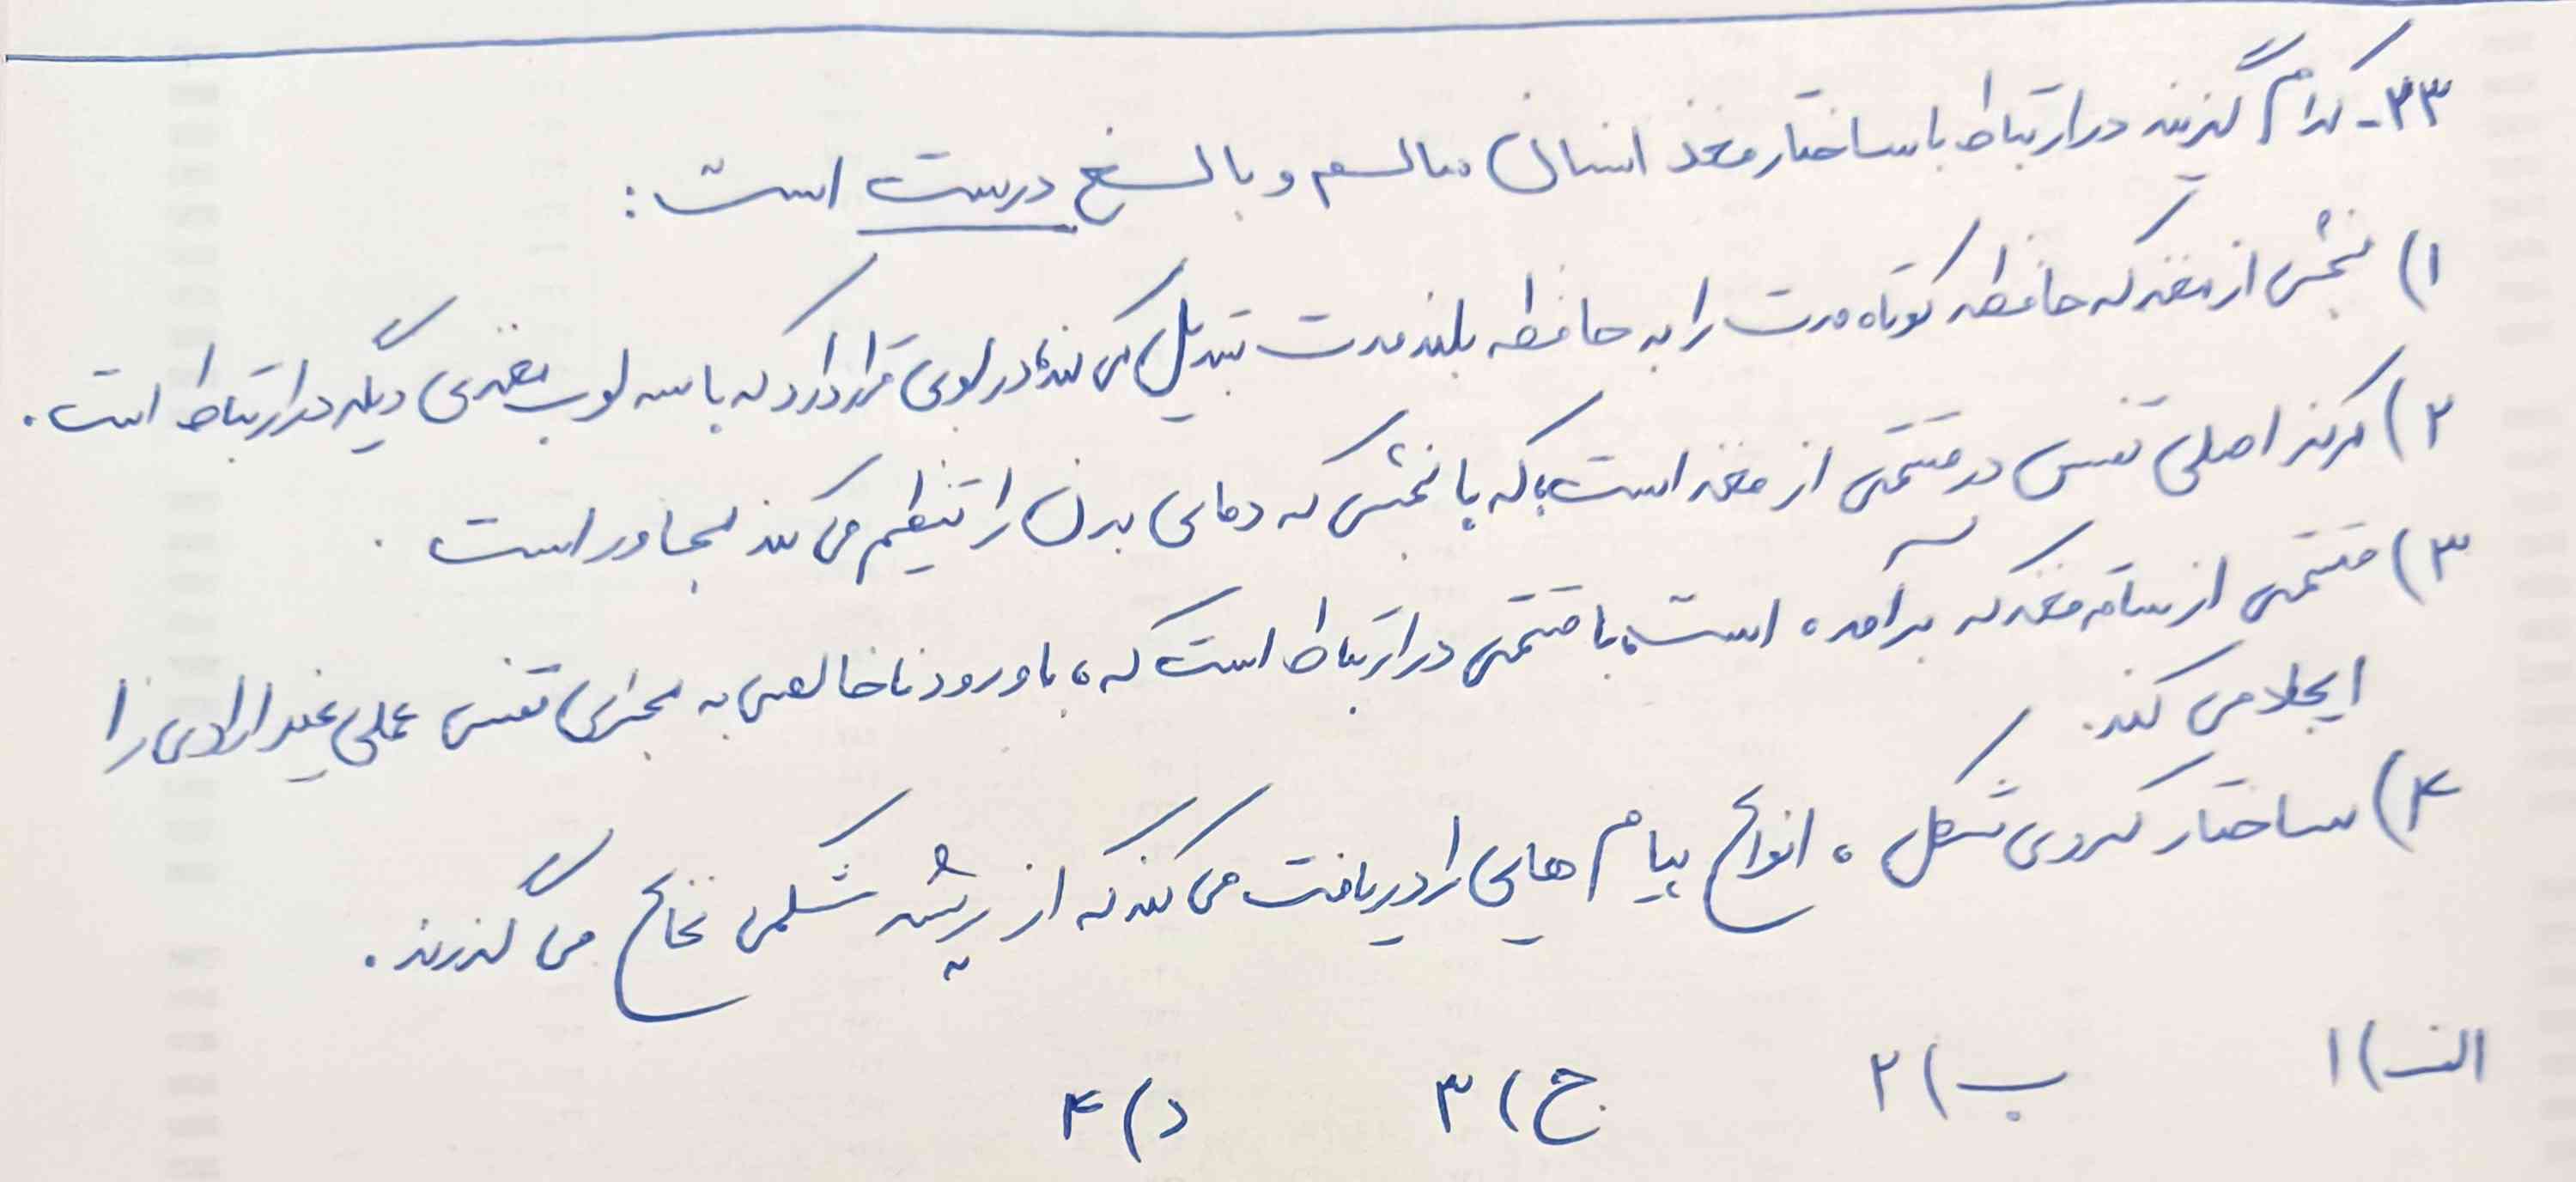 ۳۳- کدام گزینه در ارتباط با ساختار مغز انسان سالم و بالغ درست است:
۱) بخشی از مغز که حافظه کوتاه مدت را به حافظه بلند مدت تبدیل می کند، در لوبی قرار دارد که با سه لوب مغزی دیگر در ارتباط است.
۲) مرکز اصلی تنفس در قسمتی از مغز است، که با بخشی که دمای بدن را تنظیم می کند مجاور است.
۳) قسمتی از ساقه مغز که برآمده است، با قسمتی در ارتباط است که، با ورود ناخالصی به مجرای تنفسی عملی غیر ارادی را
ایجاد می کند.
۴) ساختار کروی شکل، انواع پیام هایی را دریافت می کند که از ریشه شکمی نخاع می گذرند.
الف) ۱ ب) ۲ ج) ۳ د) ۴